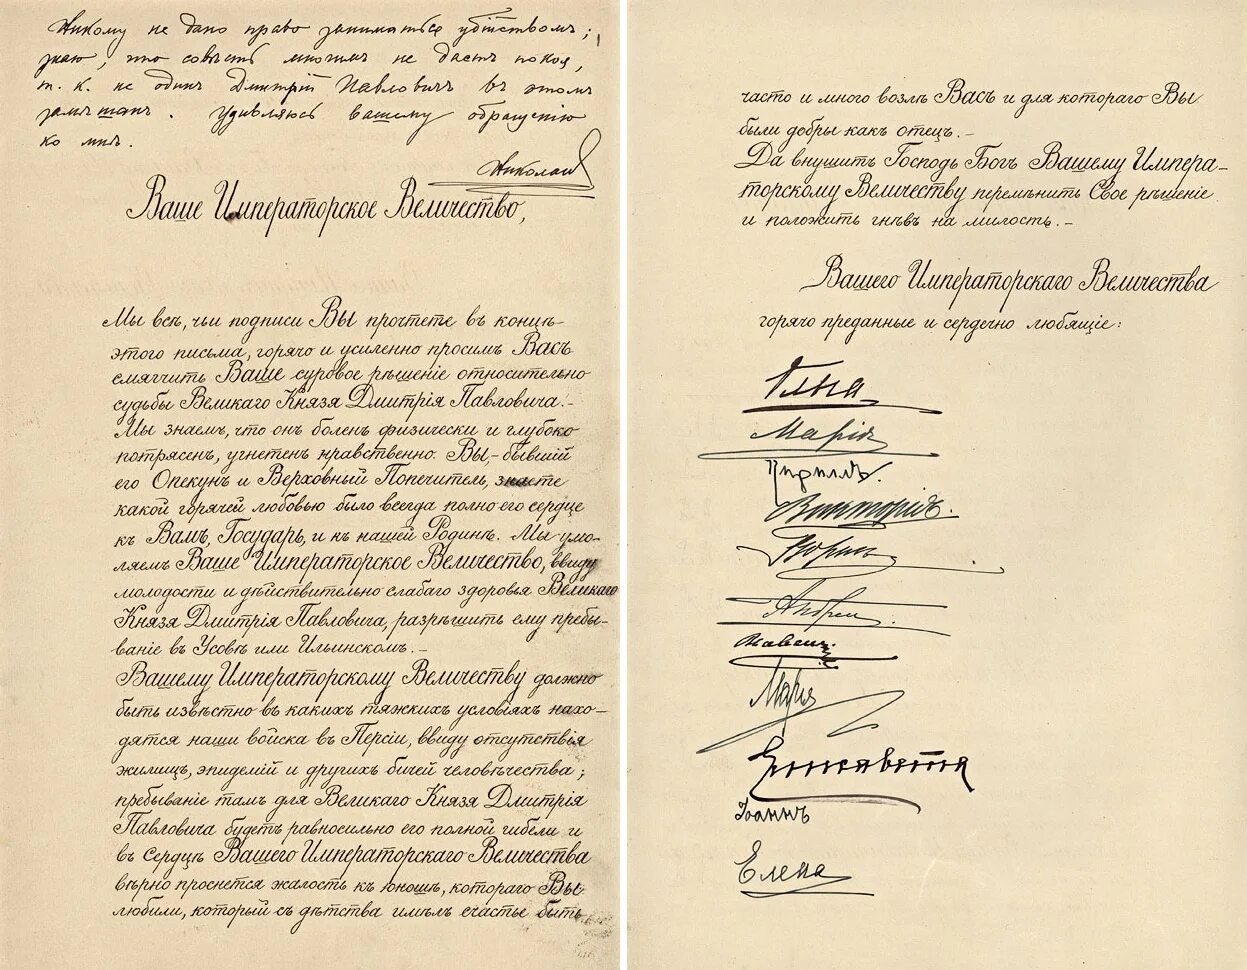 Никому не дано право заниматься убійством;
знаю, что совѣсть многимъ не даетъ покоя,
т. к. не одинъ Дмитрій Павловичъ въ этомъ
замѣшанъ. Удивляюсь вашему обращенію
ко мнѣ.
Николай
Ваше Императорское Величество,
Мы всѣ, чьи подписи Вы прочтете въ концѣ
этого письма, горячо и усиленно просимъ Васъ
смягчить Ваше суровое рѣшеніе относительно
судьбы Великаго Князя Дмитрія Павловича.-
Мы знаемъ, что онъ боленъ физически и глубоко
потрясенъ, угнетенъ нравственно. Вы,-бывшій
его Опекунъ и Верховный Попечитель, знаете
какой горячей любовью было всегда полно его сердце
къ Вамъ, Государь, и къ нашей Родинѣ. Мы умо-
ляемъ Ваше Императорское Величество, ввиду
молодости и дѣйствительно слабаго здоровья Великаго
Князя Дмитрія Павловича, разрѣшить ему пребы-
ваніе въ Усовѣ или Ильинскомъ.-
Вашему Императорскому Величеству должно
быть извѣстно въ какихъ тяжкихъ условіяхъ нахо-
дятся наши войска въ Персіи, ввиду отсутствія
жилищъ, эпидемій и другихъ бичей человѣчества;
пребываніе тамъ для Великаго Князя Дмитрія
Павловича будетъ равносильно его полной гибели и
въ Сердцѣ Вашего Императорскаго Величества
вѣрно проснется жалость къ юношѣ, котораго Вы
любили, который съ дѣтства имѣлъ счастье быть
часто и много возлѣ Васъ и для котораго Вы
были добры какъ отецъ.-
Да внушитъ Господь Богъ Вашему Импера-
торскому Величеству перемѣнить Свое рѣшеніе
и положить гнѣвъ на милость.-
Вашего Императорскаго Величества
горячо преданные и сердечно любящіе:
Ольга
Марія
Кириллъ.
Викторія.
Борисъ
Андрей.
Павелъ
Марія
Елисавета
Іоаннъ
Елена